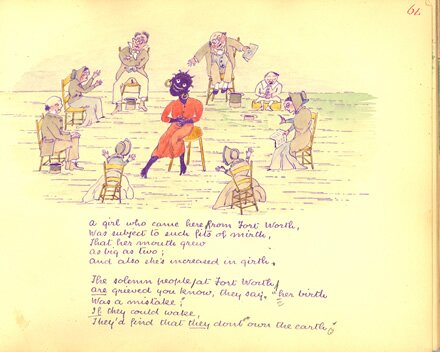 61.
A girl who came here from Fort Worth,
Was subject to such fits of mirth,
That her mouth grew
as big as two;
And also she's increased in girth.
The solemn people, at Fort Worth,
are grieved you know, they say, "her birth
Was a mistake;"
If they could wake,
They'd find that they dont own the earth.